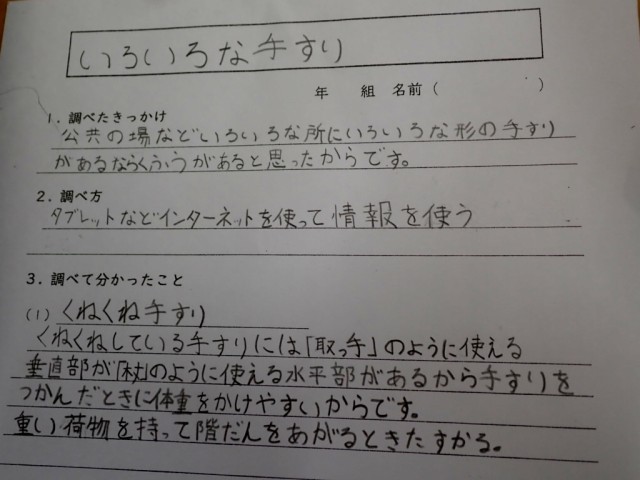 いろいろな手すり
年 組 名前( )
1. 調べたきっかけ
公共の場などいろいろな所にいろいろな形の手すり
があるならくふうがあると思ったからです。
2. 調べ方
タブレットなどインターネットを使って情報を使う
3. 調べて分かったこと
(1) くねくね手すり
くねくねしている手すりには「取っ手」のように使える
垂直部が「杖」のように使える水平部があるから手すりを
つかんだときに体重をかけやすいからです。
重い荷物を持って階だんをあがるときたすかる。